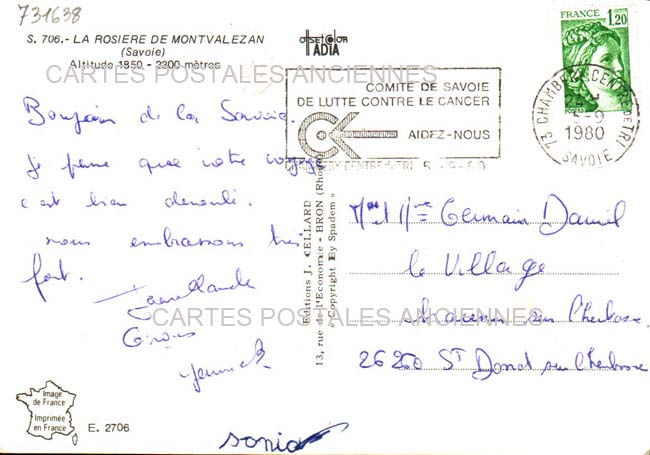 731638
S. 706.- LA ROSIERE DE MONTVALEZAN
(Savoie)
Altitude 1850 - 2300 mètres
offset color
IADIA
FRANCE
1,20
POSTES
COMITE DE SAVOIE
DE LUTTE CONTRE LE CANCER
AIDEZ-NOUS
CHAMBERY CENTRE de TRI 5-9-80
73 CHAMBERY CENTRE DE TRI
5-9
1980
SAVOIE
CARTES POSTALES ANCIENNES
Bonjour de la Savoie.
je pense que votre voyage
c'est bien déroulé.
nous embrassons très
fort.
Gros
yannick
sonia
Editions J. CELLARD
13, rue de l'Economie - BRON (Rhône)
« Copyright By Spadem »
Mr et Mme Germain Daniel
le Village
sur l'herbasse
26260 St Donat sur l'herbasse
CARTES POSTALES ANCIENNES
Image
de France
Imprimée
en France
E. 2706